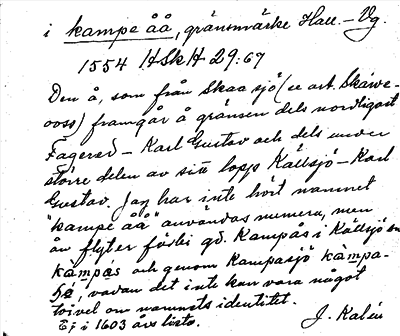 i kampe åå, gränsmärke Hall. – Vg.
1554 HSkH 29:67
Den å, som från Skaasjö (se art. Skäwe-
ooss) framgår å gränsen dels nordligast
Fagered – Karl Gustav och dels under
större delen av sitt lopp Källsjö – Karl
Gustav. Jag har inte hört namnet
"kampe åå" användas numera, men
ån flyter förbi gd. Kampås i Källsjö sn
kàmpás och genom Kampasjö kàmpa-
, vadan det inte kan vara något
tvivel om namnets identitet.
Ej i 1603 års lista. J. Kalén